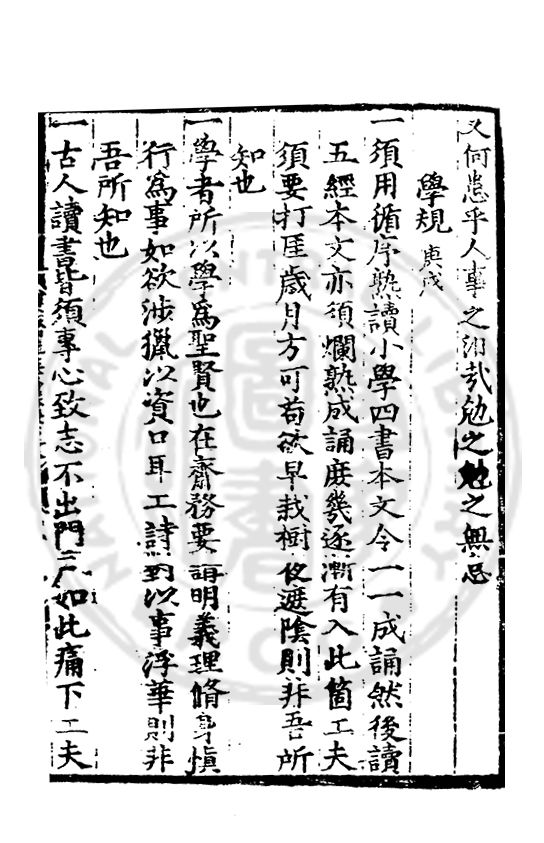 又何患乎人事之汩哉勉之勉之無忽
學規 庚戌
一須用循序熟讀小學四書本文令一一成誦然後讀
五經本文亦須爛熟成誦庶幾逐漸有入此箇工夫
須要打捱歲月方可苟欲早栽樹夜遮陰則非吾所
知也
一學者所以學為聖賢也在齋務要講明義理脩身慎
行為事如欲涉獵以資口耳工詩對以事浮華則非
吾所知也
一古人讀書皆須專心致志不出門戶如此痛下工夫